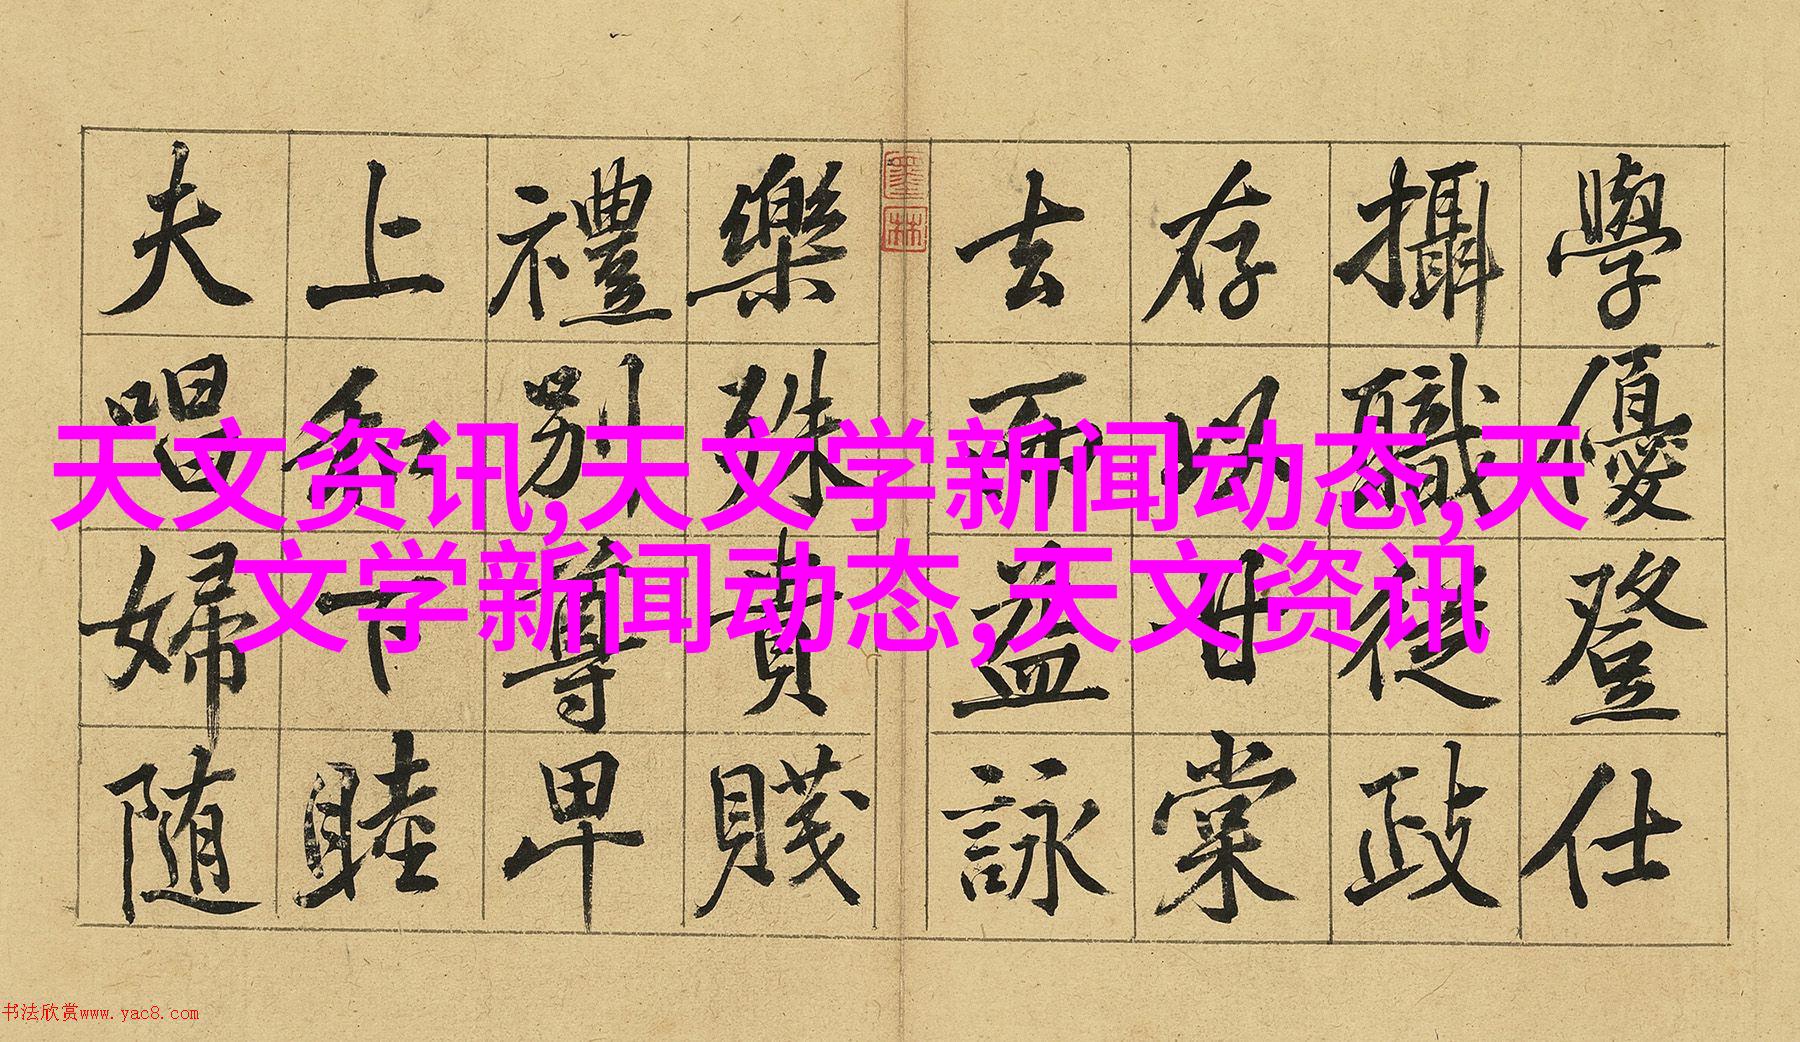 學優登仕
攝職從政
存以甘棠
去而益詠
墨林
樂殊貴賤
禮別尊卑
上和下睦
夫唱婦随
天文资讯,天文学新闻动态,天
文学新闻动态,天文资讯
书法欣赏www.yac8.com